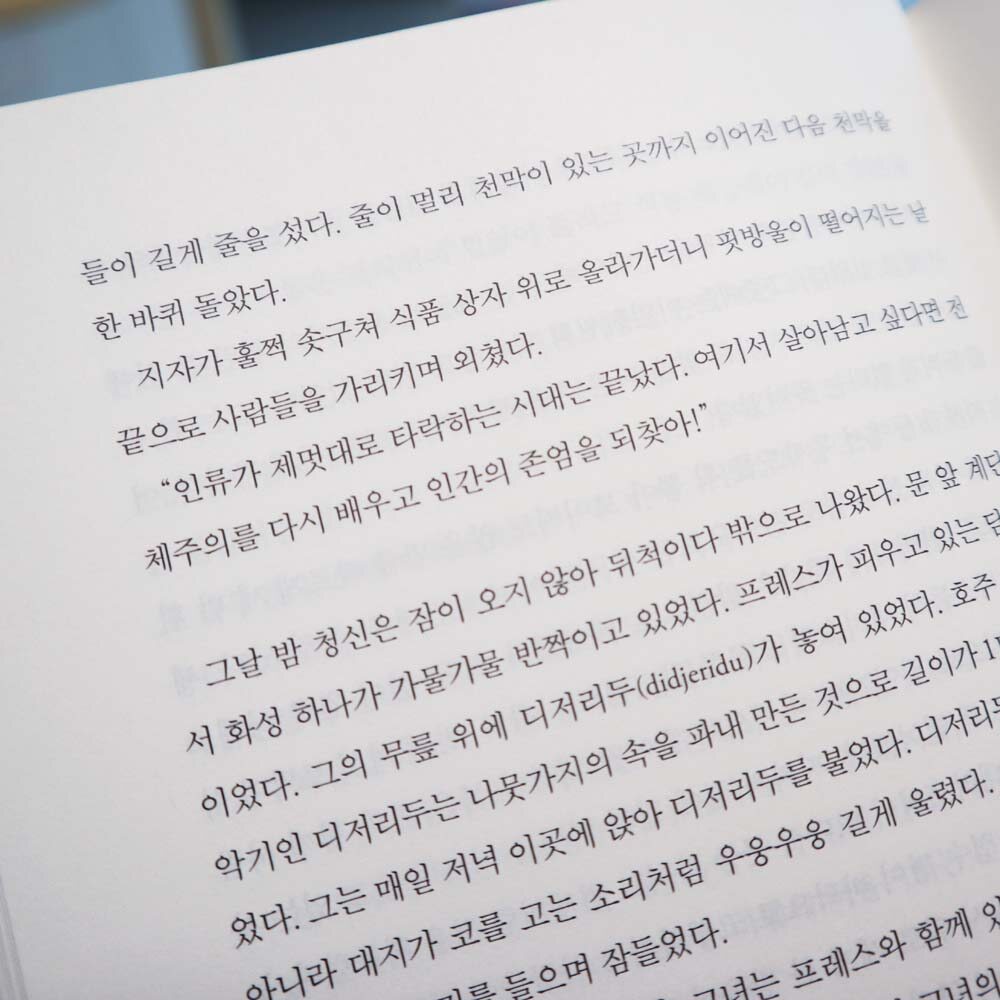 들이 길게 줄을 섰다. 줄이 멀리 천막이 있는 곳까지 이어진 다음 천막을
한 바퀴 돌았다.
지자가 훌쩍 솟구쳐 식품 상자 위로 올라가더니 핏방울이 떨어지는 날
끝으로 사람들을 가리키며 외쳤다.
“인류가 제멋대로 타락하는 시대는 끝났다. 여기서 살아남고 싶다면 전
체주의를 다시 배우고 인간의 존엄을 되찾아!”
그날 밤 청신은 잠이 오지 않아 뒤척이다 밖으로 나왔다. 문 앞 계단
서 화성 하나가 가물가물 반짝이고 있었다. 프레스가 피우고 있는 담
이었다. 그의 무릎 위에 디저리두(didjeridu)가 놓여 있었다. 호주
악기인 디저리두는 나뭇가지의 속을 파내 만든 것으로 길이가 1
었다. 그는 매일 저녁 이곳에 앉아 디저리두를 불었다. 디저리두
아니라 대지가 코를 고는 소리처럼 우웅우웅 길게 울렸다.
를 들으며 잠들었다.
그녀는 프레스와 함께 있